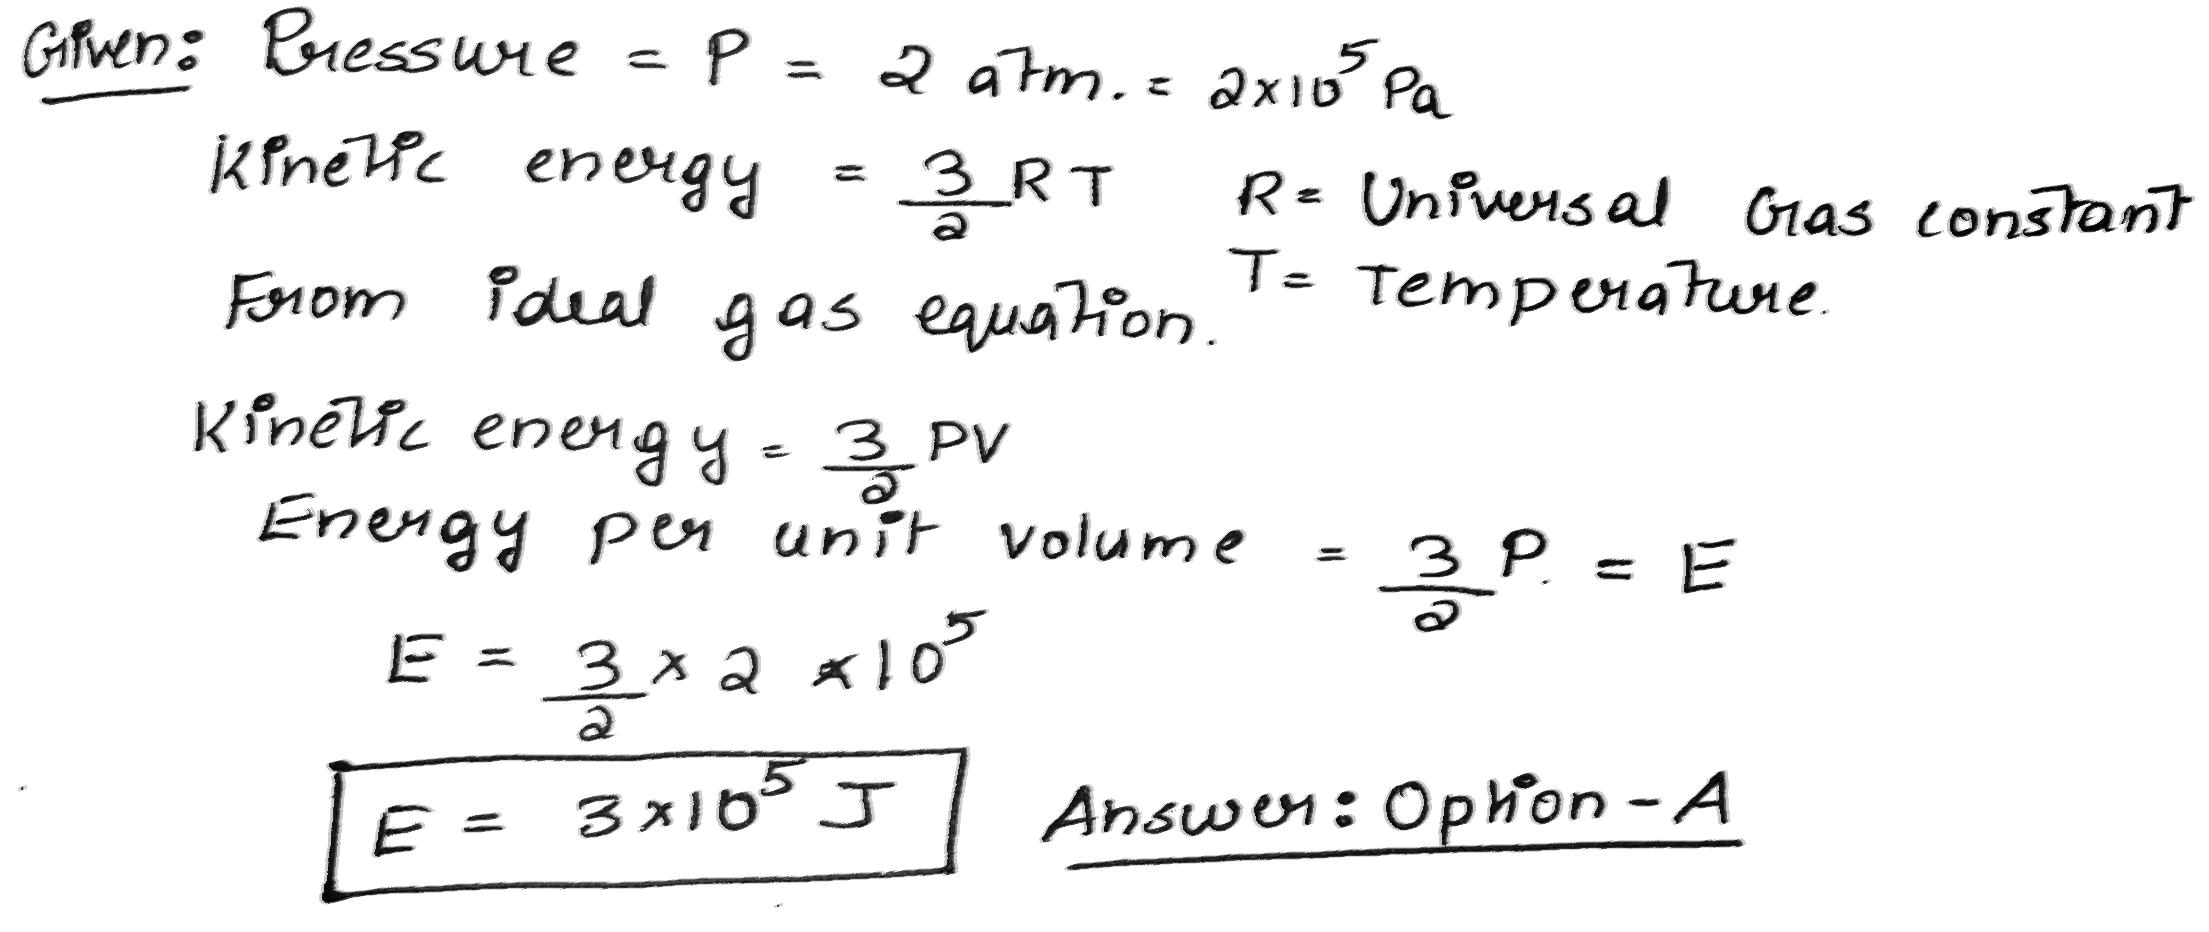 Given: Pressure = P = 2 atm. = 2×10⁵ Pa
Kinetic energy = 3/2 RT R = Universal Gas constant
T = Temperature.
From ideal gas equation.
Kinetic energy = 3/2 PV
Energy per unit volume = 3/2 P. = E
E = 3/2 × 2 × 10⁵
E = 3×10⁵ J Answer: Option - A